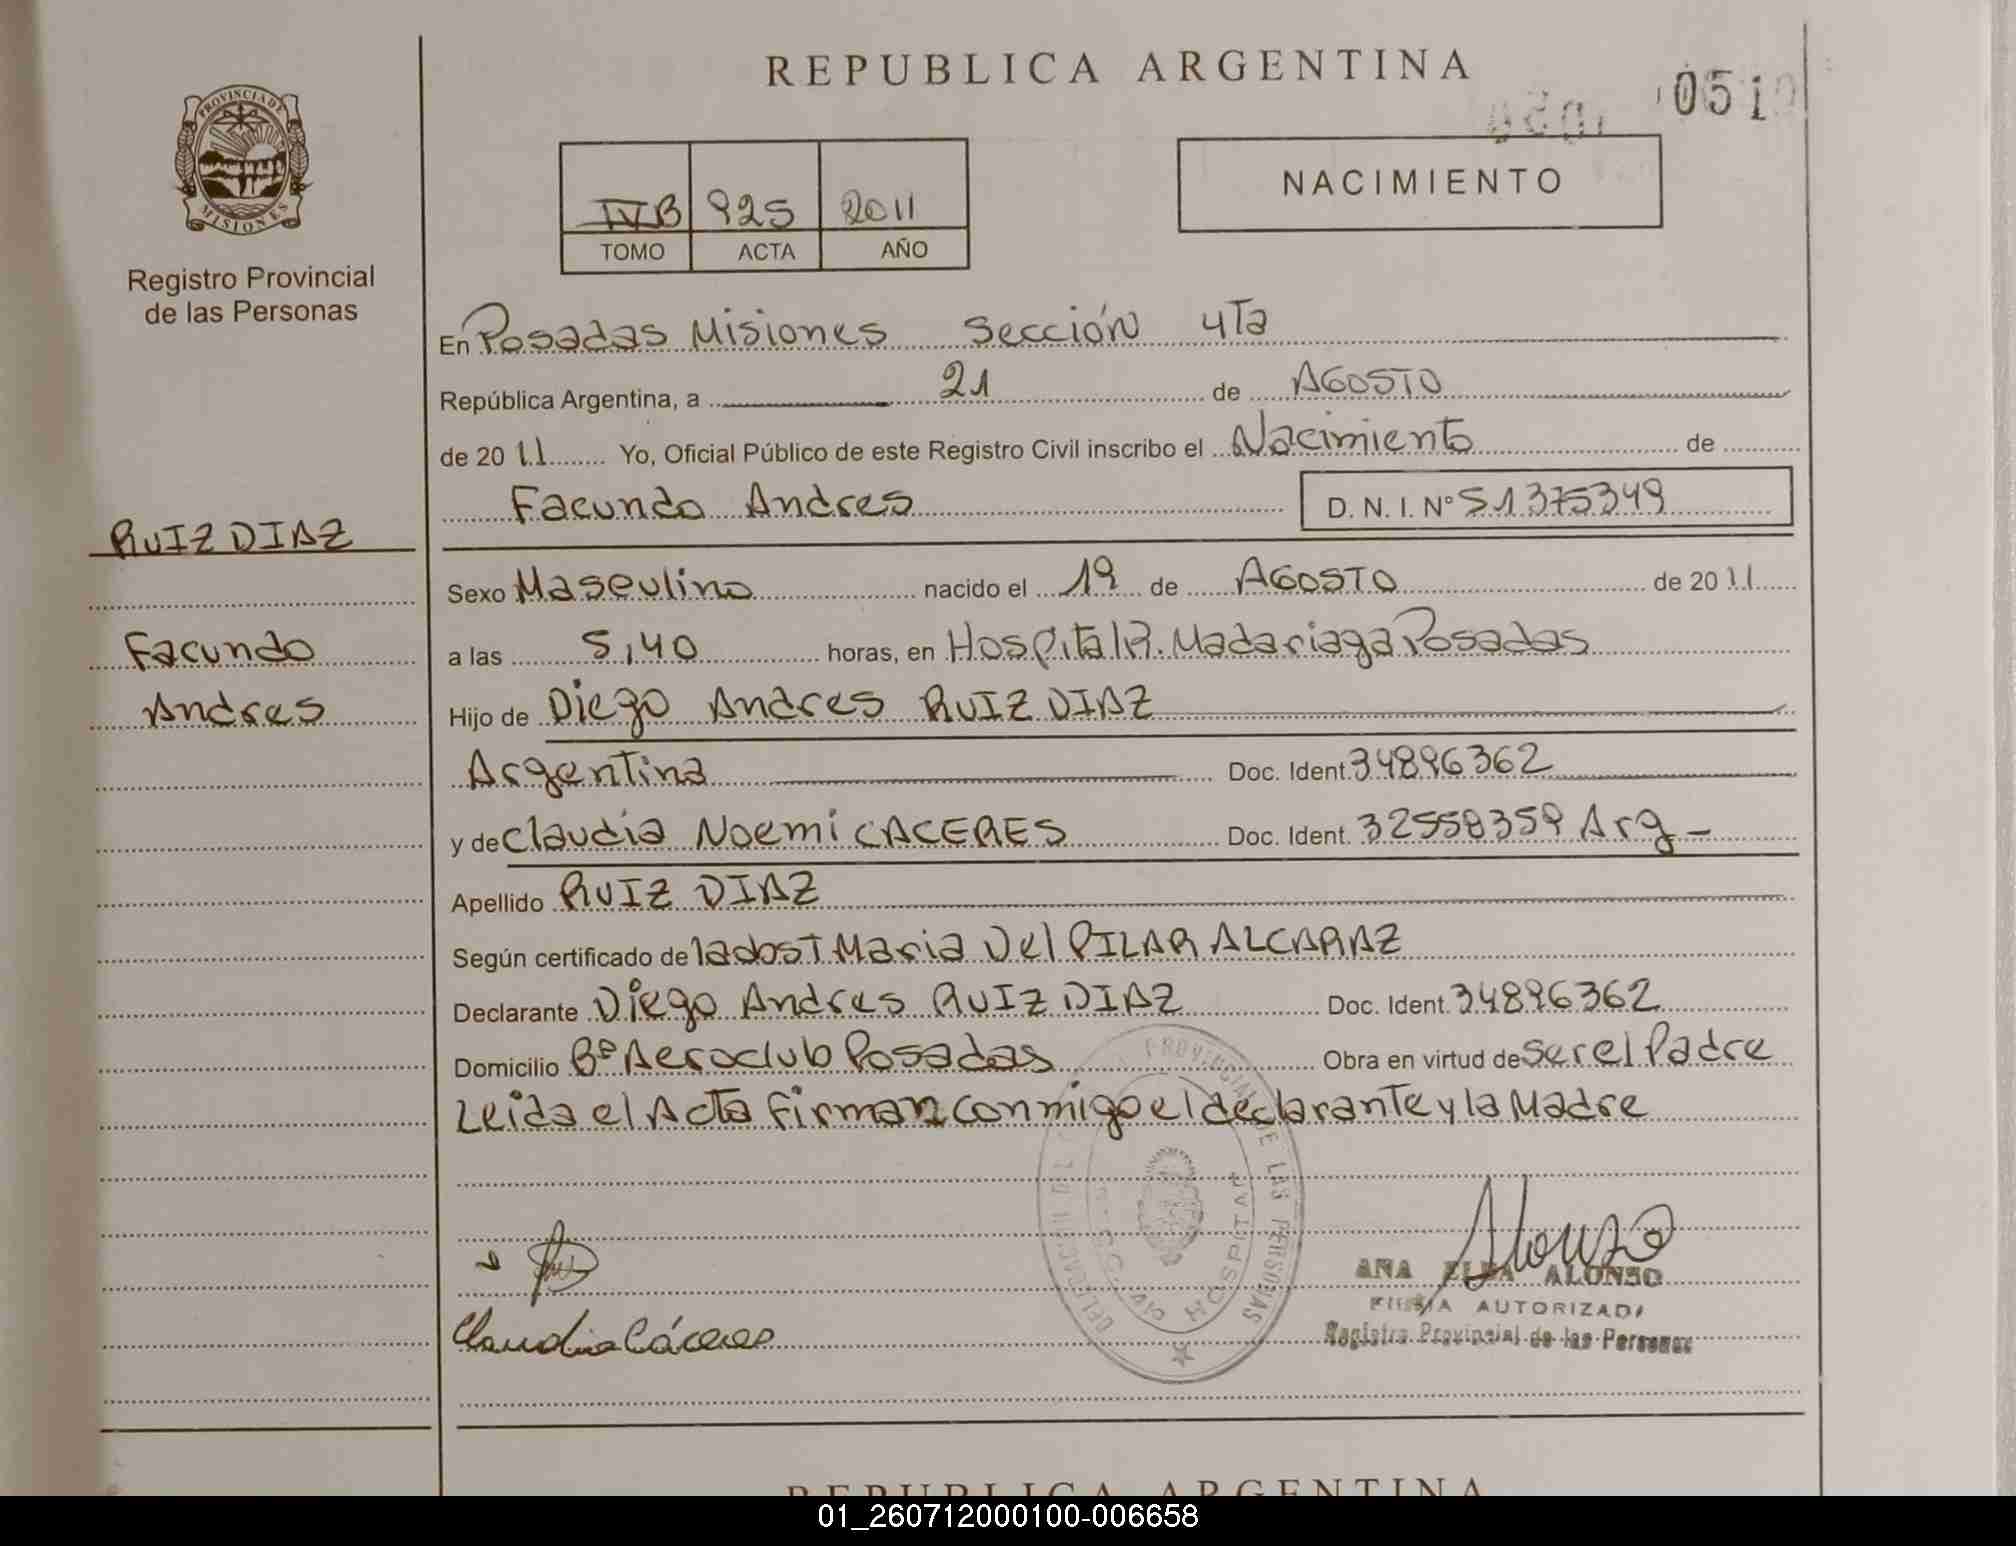 REPUBLICA ARGENTINA
051
PROVINCIA DE
MISIONES
Registro Provincial
de las Personas
NACIMIENTO
IVB 925 2011
TOMO ACTA AÑO
En Posadas Misiones Sección 4Ta
República Argentina, a 21 de AGOSTO
de 2011 Yo, Oficial Público de este Registro Civil inscribo el Nacimiento de
Facundo Andres D. N. I. Nº 51375349
RUIZ DIAZ
Facundo
Andres
Sexo Masculino nacido el 19 de AGOSTO de 2011
a las 5,40 horas, en Hospital R. Madariaga Posadas
Hijo de Diego Andres RUIZ DIAZ
Argentina Doc. Ident. 34896362
y de Claudia Noemi CACERES Doc. Ident. 32558359 Arg -
Apellido RUIZ DIAZ
Según certificado de la obst Maria Del PILAR ALCARAZ
Declarante Diego Andres RUIZ DIAZ Doc. Ident. 34896362
Domicilio Bº Aeroclub Posadas Obra en virtud de ser el Padre
Leida el Acta firman conmigo el declarante y la Madre
HOSPITAL
Claudia Cáceres
Alonso
ANA ELBA ALONSO
FIRMA AUTORIZADA
Registro Provincial de las Personas
REPUBLICA ARGENTINA
01_260712000100-006658